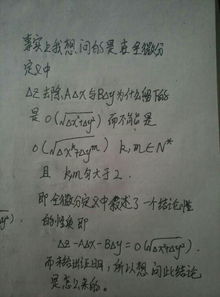 事实上我想问的是在全微分
定义中
Δz去除AΔx与BΔy为什么留下的
是 o(√Δx²+Δy²) 而不能是
o(√Δx^k+Δy^m) k,m∈N*
且 k,m均大于2.
即全微分定义中叙述了一个结论性
的性质即
Δz-AΔx-BΔy=o(√Δx²+Δy²).
而未给出证明,所以想问此结论
是怎么来的。